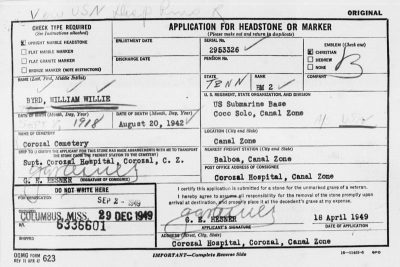 ORIGINAL
CHECK TYPE REQUIRED
(See Instructions attached)
UPRIGHT MARBLE HEADSTONE
FLAT MARBLE MARKER
FLAT GRANITE MARKER
BRONZE MARKER (NOTE INSTRUCTIONS)
APPLICATION FOR HEADSTONE OR MARKER
(Please make out and return in duplicate)
ENLISTMENT DATE
SERIAL No.
2953326
EMBLEM (Check one)
CHRISTIAN
HEBREW
NONE
DISCHARGE DATE
PENSION No.
B
STATE
TENN
RANK
BM 2
COMPANY
NAME (Last, First, Middle Initial)
BYRD, WILLIAM WILLIE
U. S. REGIMENT, STATE ORGANIZATION, AND DIVISION
US Submarine Base
Coco Solo, Canal Zone
DATE OF BIRTH (Month, Day, Year)
1918
DATE OF DEATH (Month, Day, Year)
August 20, 1942
NAME OF CEMETERY
Corozal Cemetery
LOCATION (City and State)
Canal Zone
SHIP TO (I CERTIFY THE APPLICANT FOR THIS STONE HAS MADE ARRANGEMENTS WITH ME TO TRANSPORT THE STONE FROM THE FREIGHT STATION TO THE CEMETERY)
Supt. Corozal Hospital, Corozal, C. Z.
NEAREST FREIGHT STATION (City and State)
Balboa, Canal Zone
G. E. HESNER (SIGNATURE OF CONSIGNEE)
POST OFFICE ADDRESS OF CONSIGNEE
Corozal Hospital, Canal Zone
DO NOT WRITE HERE
SEP 2 - 1949
COLUMBUS, MISS. 29 DEC 1949
6336601
I certify this application is submitted for a stone for the unmarked grave of a veteran.
I hereby agree to assume all responsibility for the removal of the stone promptly upon arrival at destination, and properly place it at the decedent's grave at my expense.
G. E. HESNER
18 April 1949
APPLICANT'S SIGNATURE
DATE
ADDRESS (Street, City, State)
Corozal Hospital, Corozal, Canal Zone
OQMG FORM
623
IMPORTANT—Complete Reverse Side
GPO